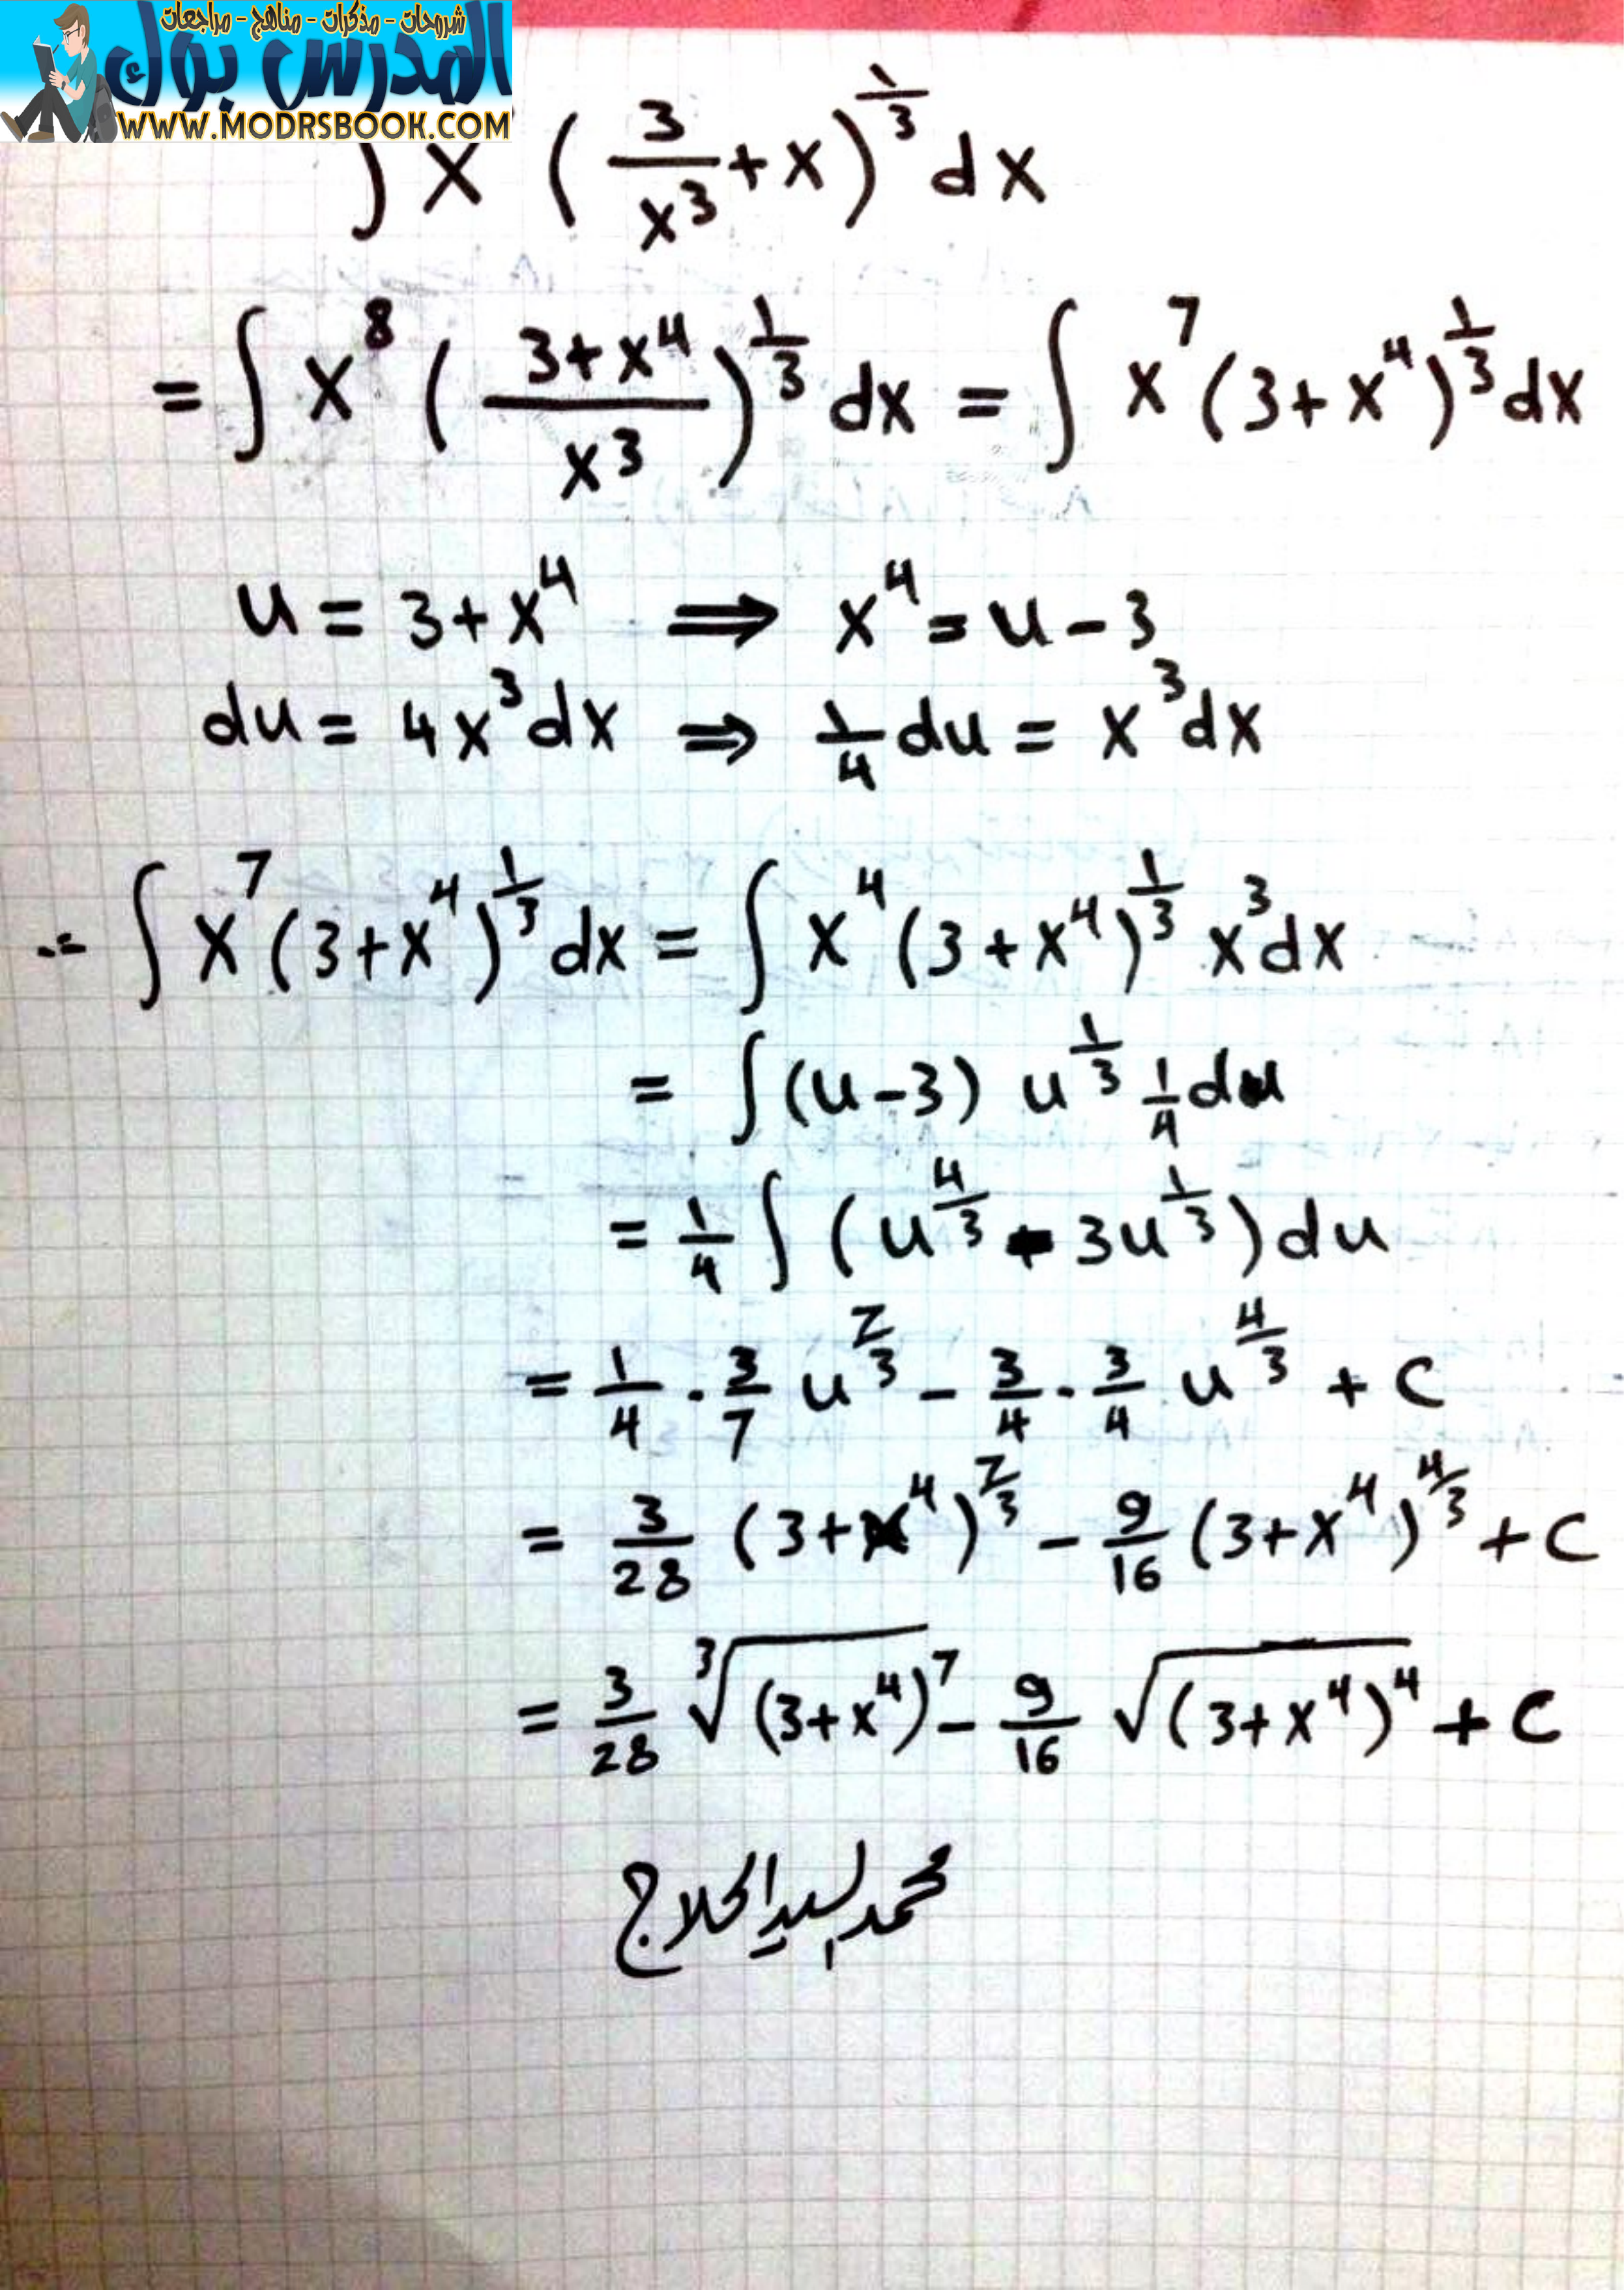 شروحات - مذكرات - مناهج - مراجعات
المدرس بوك
WWW.MODRSBOOK.COM
∫ x (3/x³ + x)^(1/3) dx
= ∫ x⁸ ((3+x⁴)/x³)^(1/3) dx = ∫ x⁷ (3+x⁴)^(1/3) dx
u = 3+x⁴ ⇒ x⁴ = u - 3
du = 4x³dx ⇒ 1/4 du = x³dx
∴ ∫ x⁷ (3+x⁴)^(1/3) dx = ∫ x⁴ (3+x⁴)^(1/3) x³dx
= ∫ (u-3) u^(1/3) 1/4 du
= 1/4 ∫ (u^(4/3) - 3u^(1/3)) du
= 1/4 · 3/7 u^(7/3) - 3/4 · 3/4 u^(4/3) + C
= 3/28 (3+x⁴)^(7/3) - 9/16 (3+x⁴)^(4/3) + C
= 3/28 ∛(3+x⁴)⁷ - 9/16 √(3+x⁴)⁴ + C
محمد السيد الحلاج